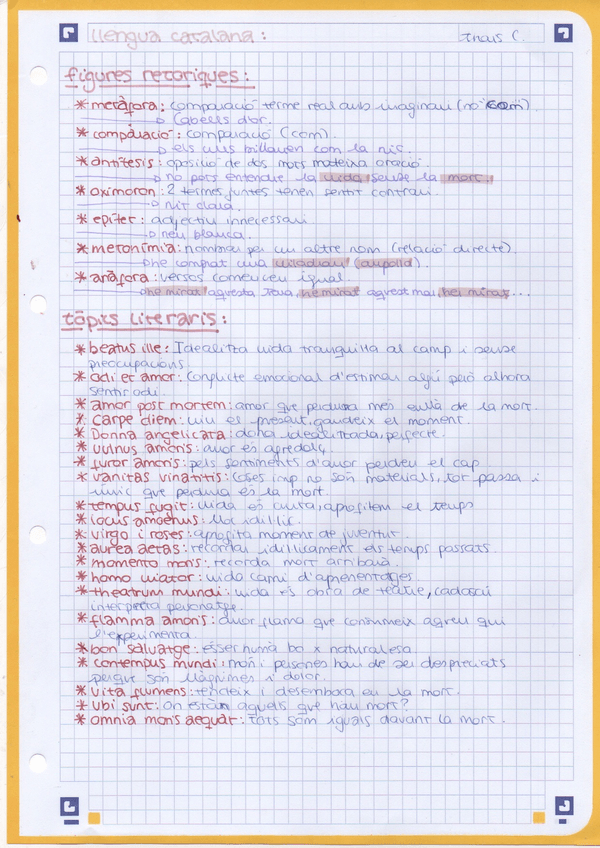 llengua catalana:
figures retoriques:
* metàfora: comparació terme real amb imaginari (no "com").
Cabells d'or.
* comparació: comparació (com).
els ulls brillaven com la nit.
* antítesis: oposició de dos mots mateixa oració.
no pots entendre la vida sense la mort.
* oximoron: 2 termes juntes tenen sentit contrari.
nit clara.
* epítet: adjectiu innecessari
neu blanca.
* metonímia: nominar per un altre nom (relació directe).
he comprat una (ampolla).
* anàfora: versos comencen igual
he mirat aquesta terra, he mirat aquest mar, he mirat...
tòpics literaris:
* beatus ille: Idealitza vida tranquil·la al camp i sense
preocupacions
* odi et amor: Conflicte emocional d'estimar algú però alhora
sentir odi
* amor post mortem: amor que perdura més enllà de la mort.
* carpe diem: viu el present, gaudeix el moment.
* Donna angelicata: dona idealitzada, perfecte.
* vulnus amoris: amor és agredolç
* furor amoris: pels sentiments d'amor perdeu el cap
* vanitas vinatitis: coses imp no són materials, tot passa i
únic que perdura és la mort.
* tempus fugit: vida és curta, aprofitem el temps
* locus amoenus: lloc idíl·lic.
* virgo i roses: aprofita moment de joventut.
* aurea aetas: recordar idíl·licament els temps passats.
* momento moris: recorda mort arribarà.
* homo viator: vida camí d'aprenentatges
* theatrum mundi: vida és obra de teatre, cadascú
interpreta personatge.
* flamma amoris: amor flama que consumeix a qui
l'experimenta
* bon salvatge: ésser humà bo x naturalesa
* contempus mundi: món i persones han de ser despreciats
perquè són llàgrimes i dolor.
* vita flumens: neix i desemboca en la mort.
* ubi sunt: on estàn aquells que han mort?
* omnia mors aequat: tots som iguals davant la mort.